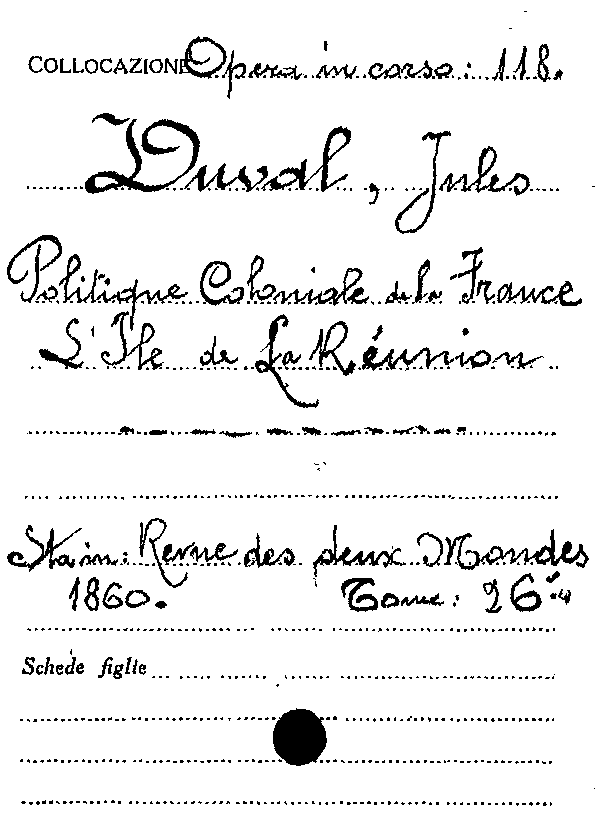 COLLOCAZIONE Opera in corso: 118.
Duval, Jules
Politique Coloniale de la France
L'Ile de La Réunion
Sta in: Revue des deux Mondes
1860. Tome: 26
Schede figlie